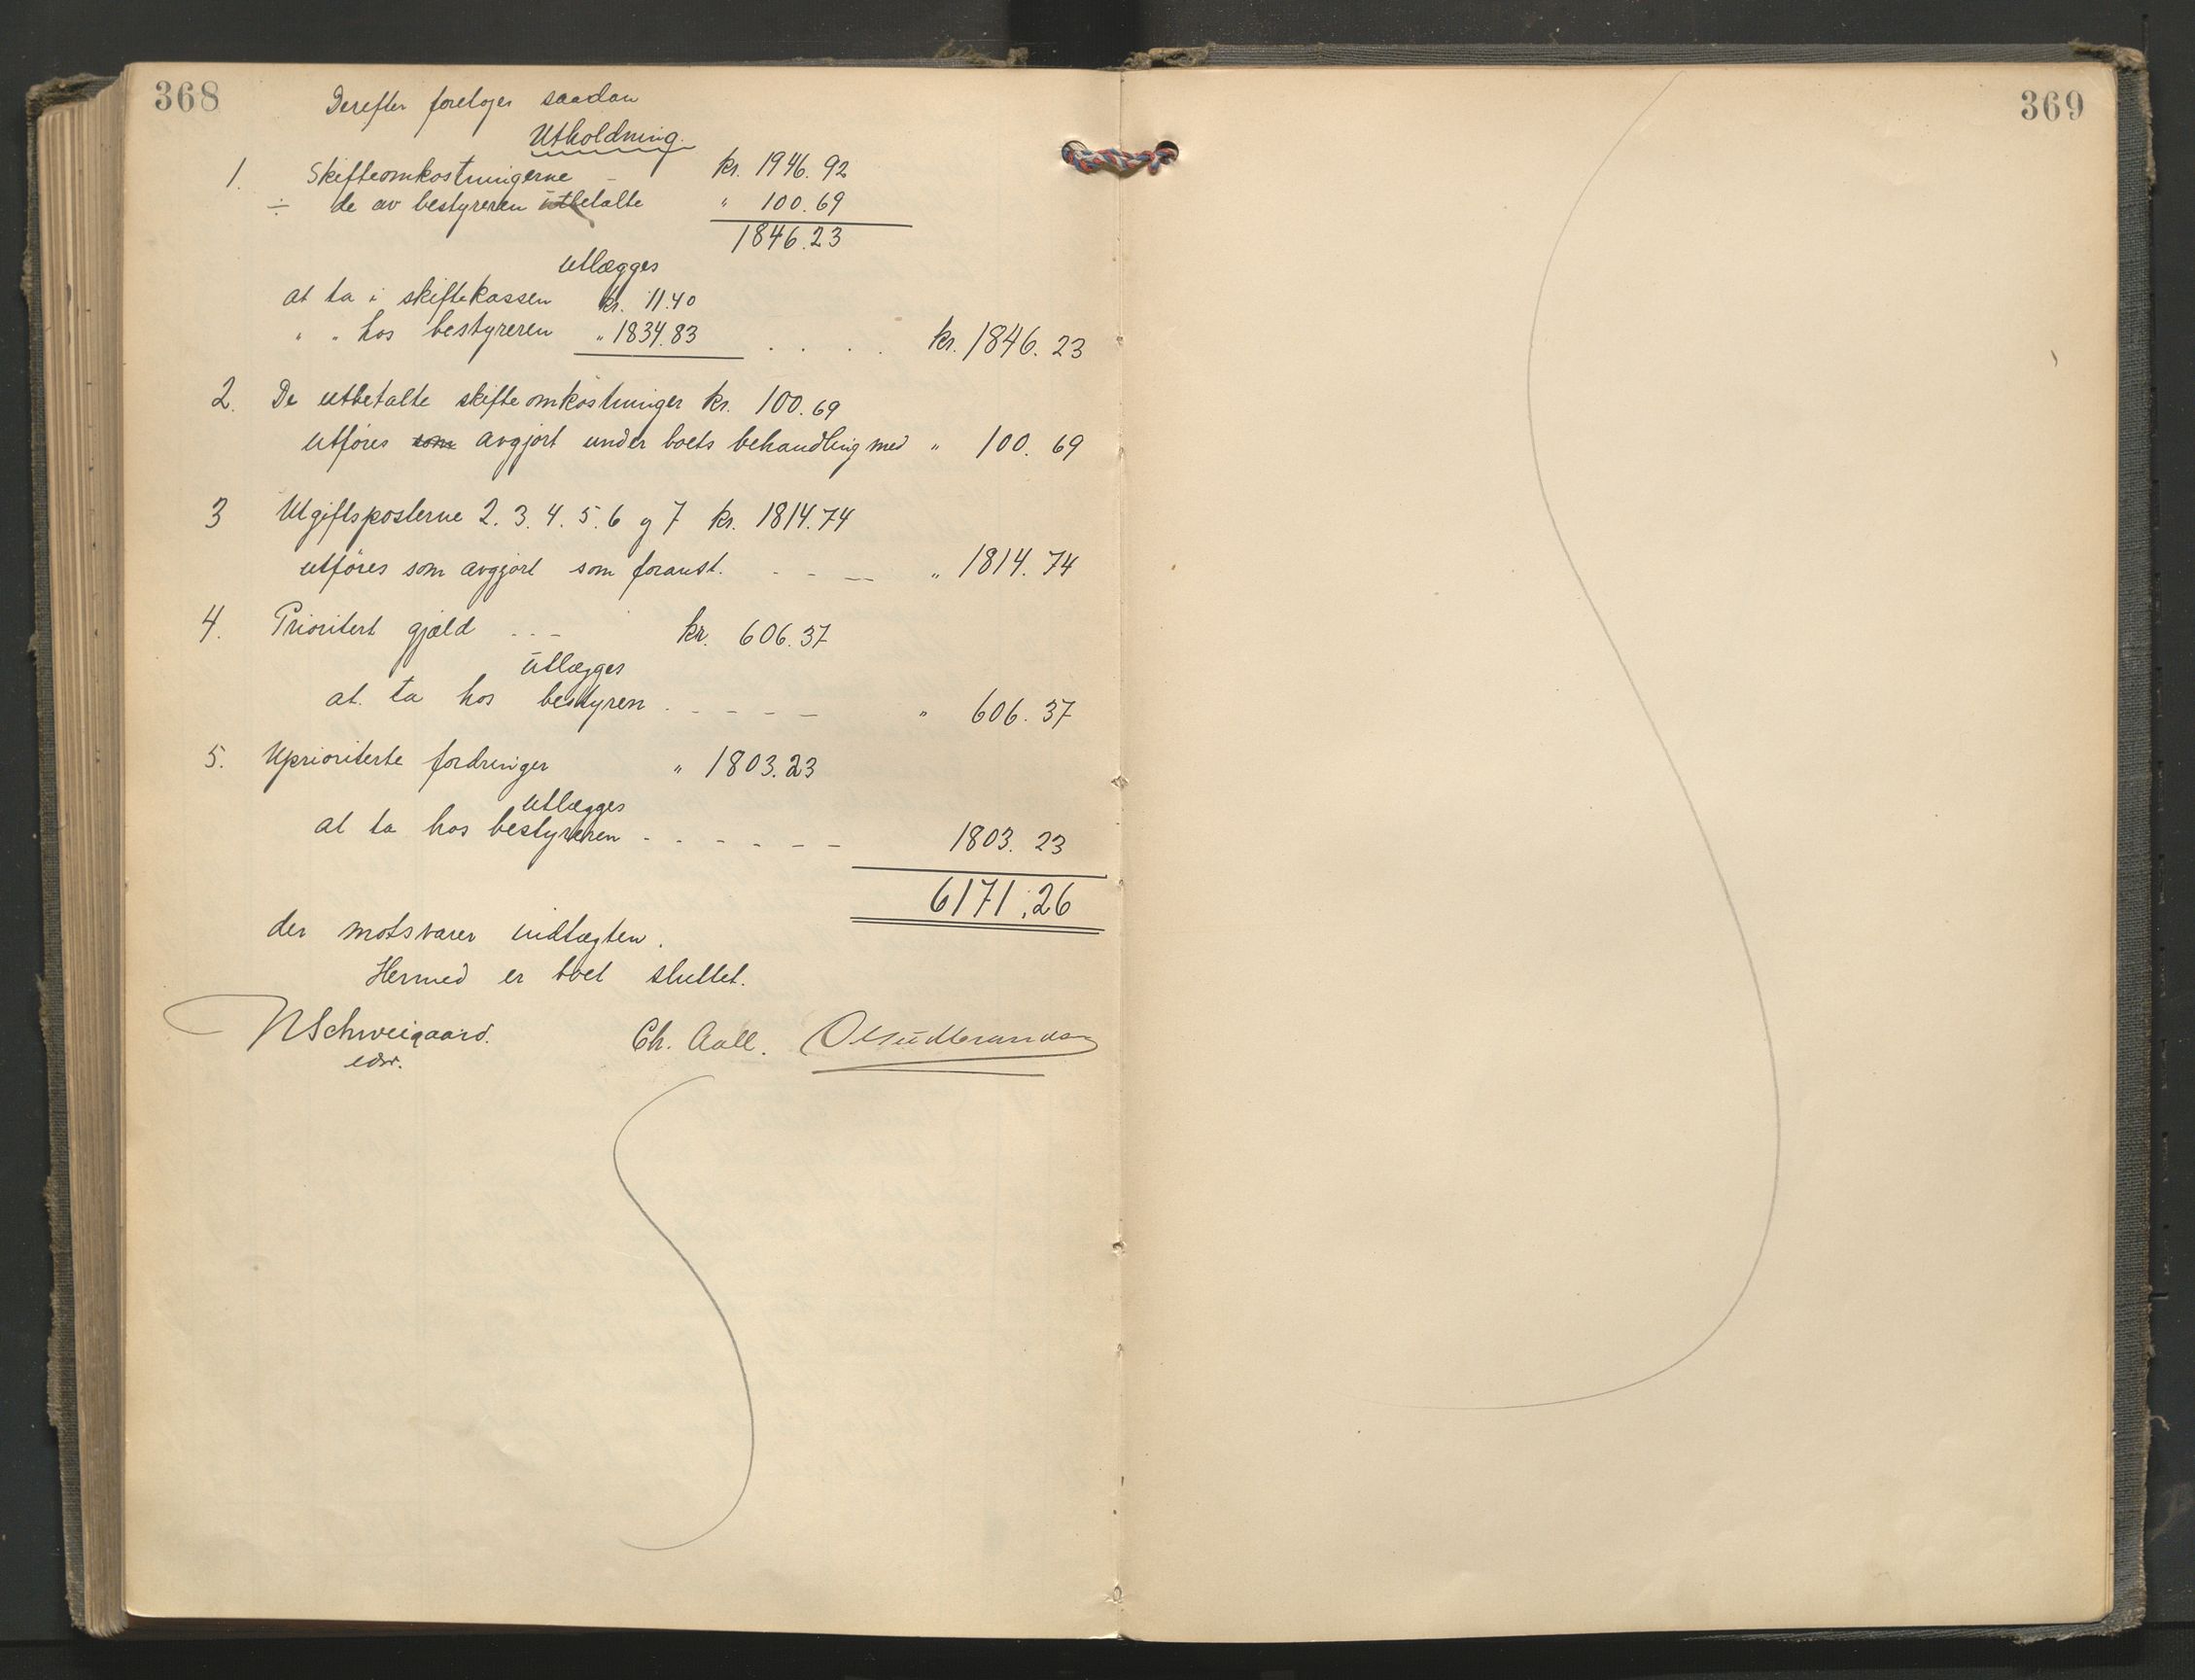 368
Derefter foretoges saadan
Utholdning.
1. Skifteomkostningerne - kr. 1946.92
÷ de av bestyreren utbetalte " 100.69
1846.23
utlægges
at ta i skiftekassen kr. 11.40
" " hos bestyreren " 1834.83 . . . . kr. 1846.23
2. De utbetalte skifteomkostninger kr. 100.69
utføres som avgjort under boets behandling med " 100.69
3 Utgiftsposterne 2. 3. 4. 5. 6 og 7 kr. 1814.74
utføres som avgjort som foranst. - - - " 1814.74
4. Prioritert gjæld - - - kr. 606.37
utlægges
at ta hos bestyren - - - - - " 606.37
5. Uprioriterte fordringer " 1803.23
utlægges
at ta hos bestyreren - - - - - - 1803.23
6171.26
der motsvarer indtægten.
Hermed er boet sluttet.
N Schweigaard. Ch. Aall.
369